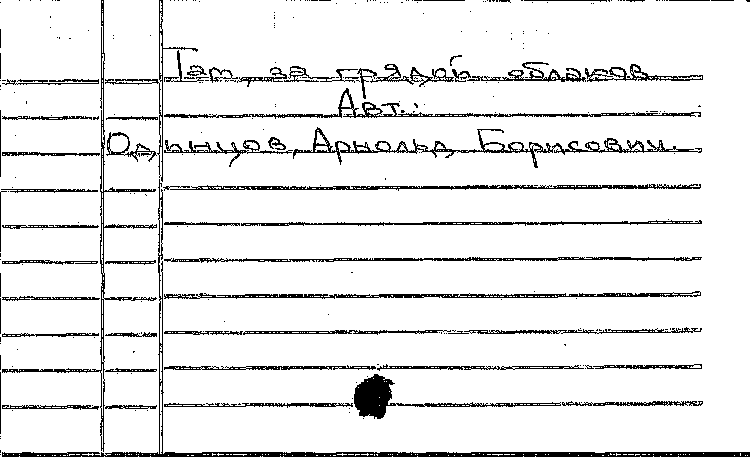 Там, за грядой облаков
Авт.:
Одинцов, Арнольд Борисович.